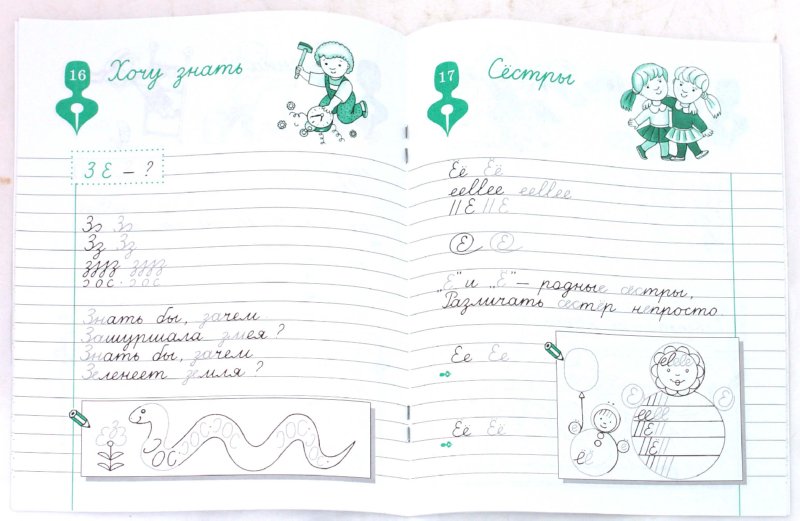 16 Хочу знать
З Е – ?
Зз Зз
Зз Зз
ззззз зззз
ɔoc · ɔoc
Знать бы, зачем
Зашуршала змея?
Знать бы, зачем
Зеленеет земля?
17 Сёстры
Её Её
ееввее ееввее
// Е // Е
Е Е
„Е" и „Ё" – родные сёстры,
Различать сестёр непросто.
Ее Ее
Её Её